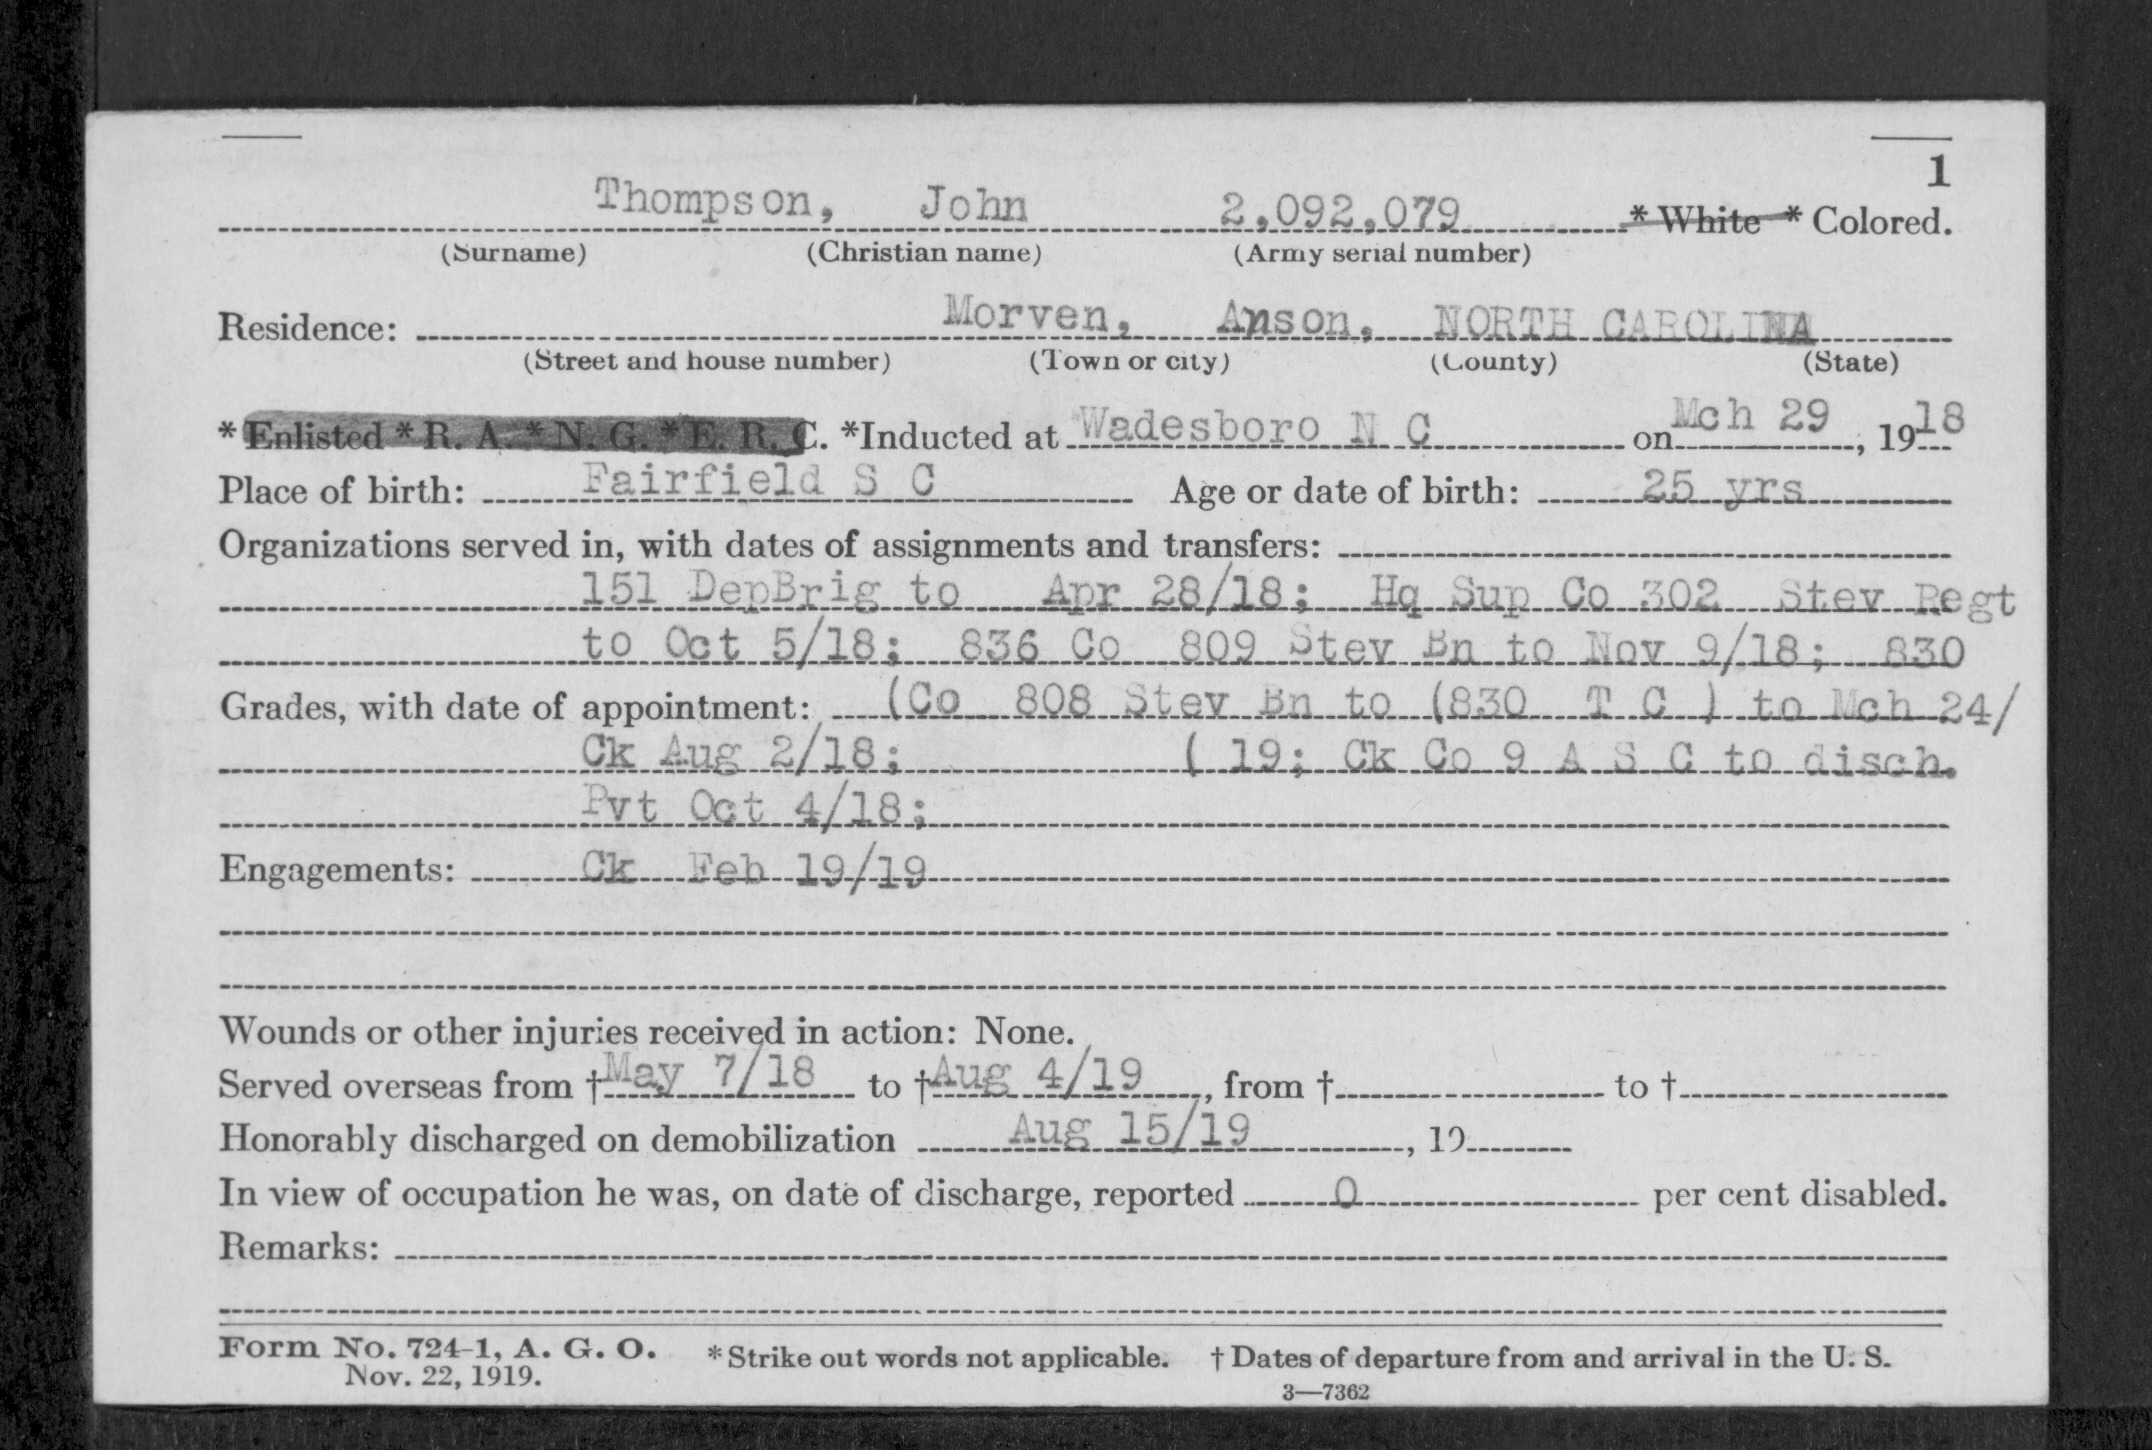 1
Thompson, John 2,092,079 * White * Colored.
(Surname) (Christian name) (Army serial number)
Residence: Morven, Anson, NORTH CAROLINA
(Street and house number) (Town or city) (County) (State)
* Enlisted * R. A. * N. G. * E. R. C. *Inducted at Wadesboro N C on Mch 29, 1918
Place of birth: Fairfield S C Age or date of birth: 25 yrs
Organizations served in, with dates of assignments and transfers:
151 DepBrig to Apr 28/18; Hq Sup Co 302 Stev Regt
to Oct 5/18; 836 Co 809 Stev Bn to Nov 9/18; 830
Grades, with date of appointment: (Co 808 Stev Bn to (830 T C ) to Mch 24/
Ck Aug 2/18; ( 19; Ck Co 9 A S C to disch.
Pvt Oct 4/18;
Engagements: Ck Feb 19/19
Wounds or other injuries received in action: None.
Served overseas from † May 7/18 to † Aug 4/19, from † to †
Honorably discharged on demobilization Aug 15/19, 19
In view of occupation he was, on date of discharge, reported 0 per cent disabled.
Remarks:
Form No. 724-1, A. G. O. * Strike out words not applicable. † Dates of departure from and arrival in the U. S.
Nov. 22, 1919.
3—7362